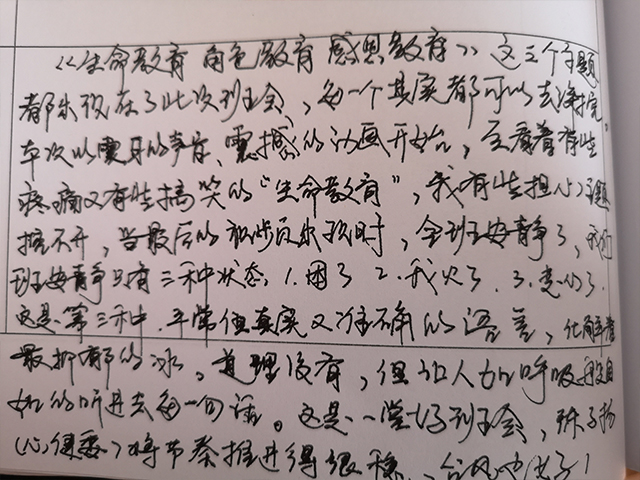 《生命教育 角色教育 感恩教育》这三个主题
都出现在了此次班会,每一个其实都可以去深挖。
本次以震耳的声音、震撼的动画开始,至看着有些
疼痛又有些搞笑的“生命教育”,我有些担心主题
推不开,当最后的视频出现时,全班安静了,我们
班安静只有三种状态:1.困了 2.我火了.3.走心了.
这是第三种.平常但真实又准确的语言,化解着
最抑郁的冰,道理没有,但让人如呼吸般自
如的听进去每一句话。这是一堂好班会,
将节奏推进得很稳,台风也